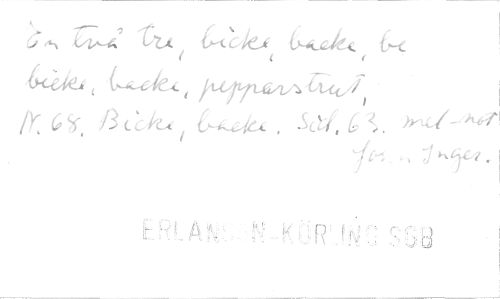 En två tre, bicke, backe, be
bicke, backe, pepparstrut,
N. 68. Bicke, backe. Sid. 63. mel-not
Inger.
ERLANSON-KÖRLING SGB